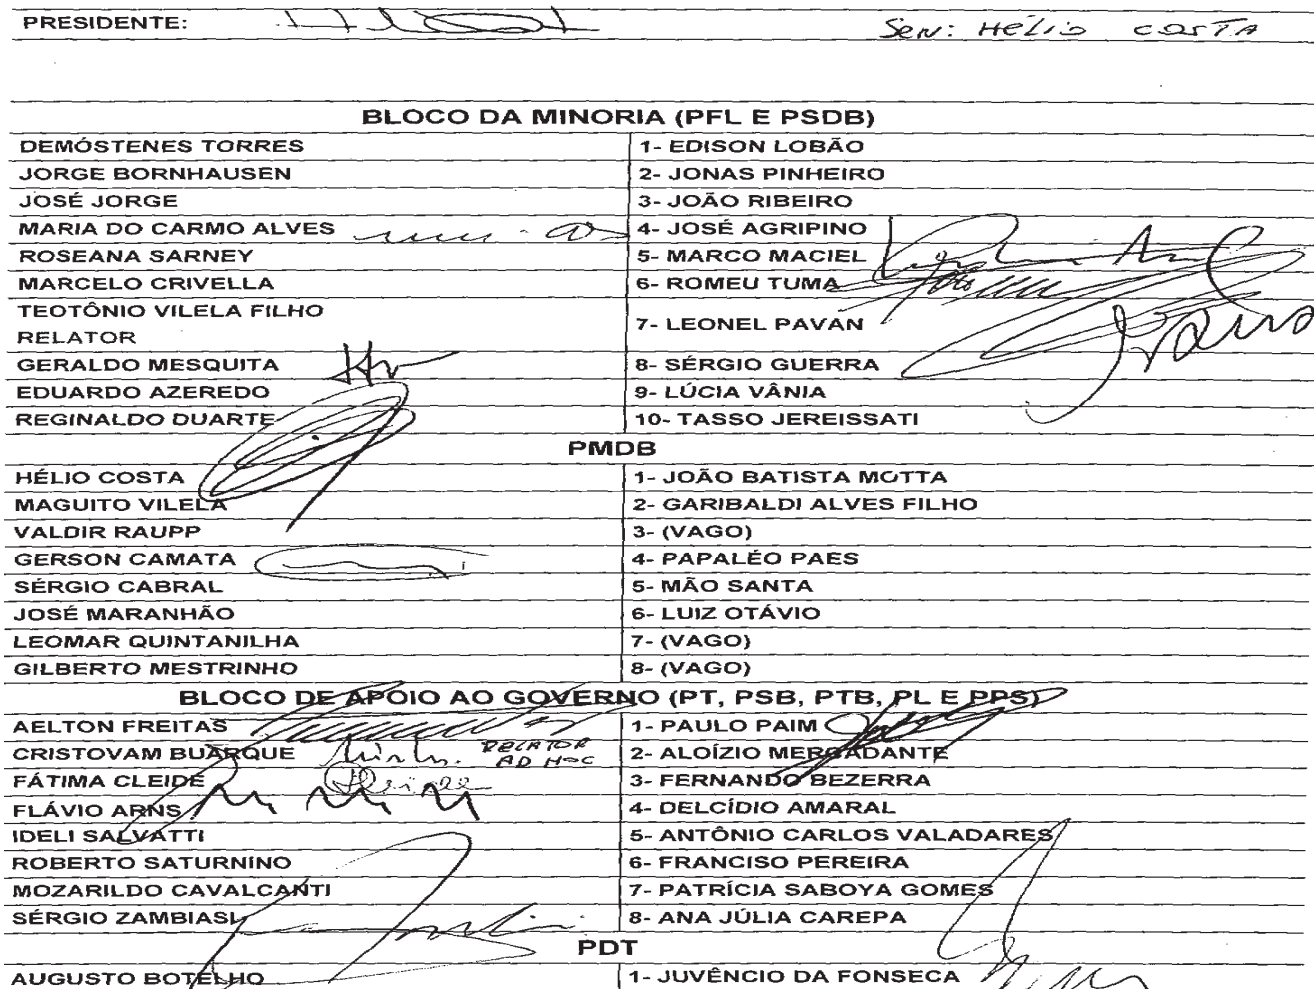 PRESIDENTE: Sen: Hélio Costa
BLOCO DA MINORIA (PFL E PSDB)
DEMÓSTENES TORRES 1- EDISON LOBÃO
JORGE BORNHAUSEN 2- JONAS PINHEIRO
JOSÉ JORGE 3- JOÃO RIBEIRO
MARIA DO CARMO ALVES 4- JOSÉ AGRIPINO
ROSEANA SARNEY 5- MARCO MACIEL
MARCELO CRIVELLA 6- ROMEU TUMA
TEOTÔNIO VILELA FILHO
RELATOR 7- LEONEL PAVAN
GERALDO MESQUITA 8- SÉRGIO GUERRA
EDUARDO AZEREDO 9- LÚCIA VÂNIA
REGINALDO DUARTE 10- TASSO JEREISSATI
PMDB
HÉLIO COSTA 1- JOÃO BATISTA MOTTA
MAGUITO VILELA 2- GARIBALDI ALVES FILHO
VALDIR RAUPP 3- (VAGO)
GERSON CAMATA 4- PAPALÉO PAES
SÉRGIO CABRAL 5- MÃO SANTA
JOSÉ MARANHÃO 6- LUIZ OTÁVIO
LEOMAR QUINTANILHA 7- (VAGO)
GILBERTO MESTRINHO 8- (VAGO)
BLOCO DE APOIO AO GOVERNO (PT, PSB, PTB, PL E PPS)
AELTON FREITAS 1- PAULO PAIM
CRISTOVAM BUARQUE RELATOR AD HOC 2- ALOÍZIO MERCADANTE
FÁTIMA CLEIDE 3- FERNANDO BEZERRA
FLÁVIO ARNS 4- DELCÍDIO AMARAL
IDELI SALVATTI 5- ANTÔNIO CARLOS VALADARES
ROBERTO SATURNINO 6- FRANCISO PEREIRA
MOZARILDO CAVALCANTI 7- PATRÍCIA SABOYA GOMES
SÉRGIO ZAMBIASI 8- ANA JÚLIA CAREPA
PDT
AUGUSTO BOTELHO 1- JUVÊNCIO DA FONSECA